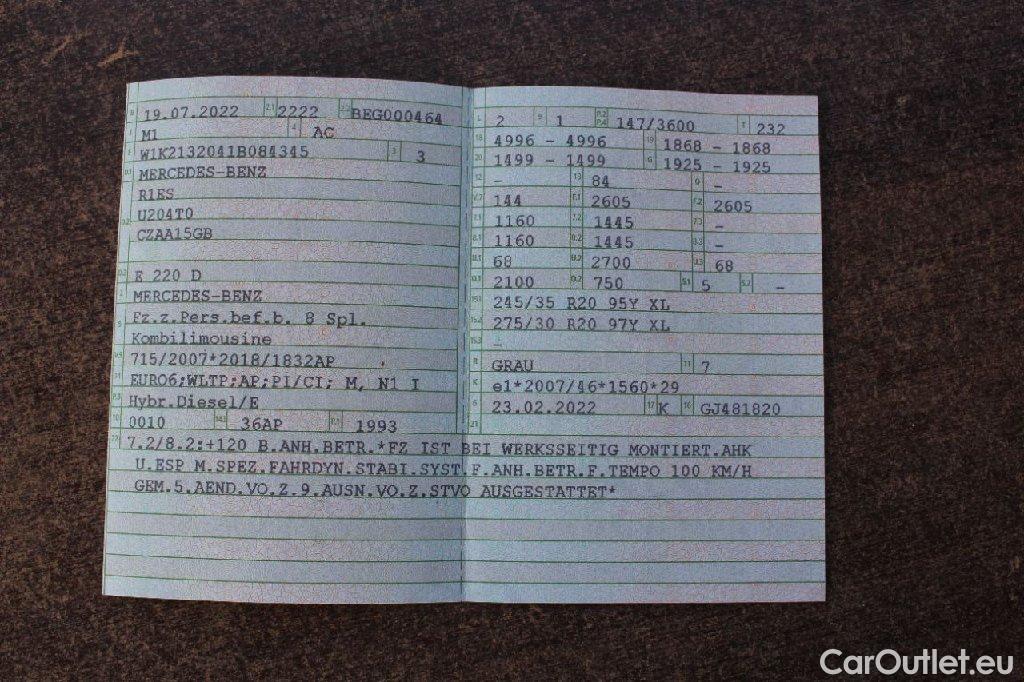 B 19.07.2022 2.1 2222 2.2 BEG000464
J M1 4 AC
E W1K2132041B084345 3 3
D.1 MERCEDES-BENZ
R1ES
D.2 U204T0
CZAA15GB
D.3 E 220 D
2 MERCEDES-BENZ
5 Fz.z.Pers.bef.b. 8 Spl.
Kombilimousine
V.9 715/2007*2018/1832AP
14 EURO6;WLTP;AP;PI/CI; M, N1 I
P.3 Hybr.Diesel/E
10 0010 14.1 36AP P.1 1993
L 2 9 1 P.2 P.4 147/3600 T 232
18 4996 - 4996 19 1868 - 1868
20 1499 - 1499 G 1925 - 1925
12 - 13 84 Q -
V.7 144 F.1 2605 F.2 2605
7.1 1160 7.2 1445 7.3 -
8.1 1160 8.2 1445 8.3 -
U.1 68 U.2 2700 U.3 68
O.1 2100 O.2 750 S.1 5 S.2 -
15.1 245/35 R20 95Y XL
15.2 275/30 R20 97Y XL
15.3 -
R GRAU 11 7
K e1*2007/46*1560*29
6 23.02.2022 17 K 16 GJ481820
21
22 7.2/8.2:+120 B.ANH.BETR.*FZ IST BEI WERKSSEITIG MONTIERT.AHK
U.ESP M.SPEZ.FAHRDYN.STABI.SYST.F.ANH.BETR.F.TEMPO 100 KM/H
GEM.5.AEND.VO.Z.9.AUSN.VO.Z.STVO AUSGESTATTET*
CarOutlet.eu